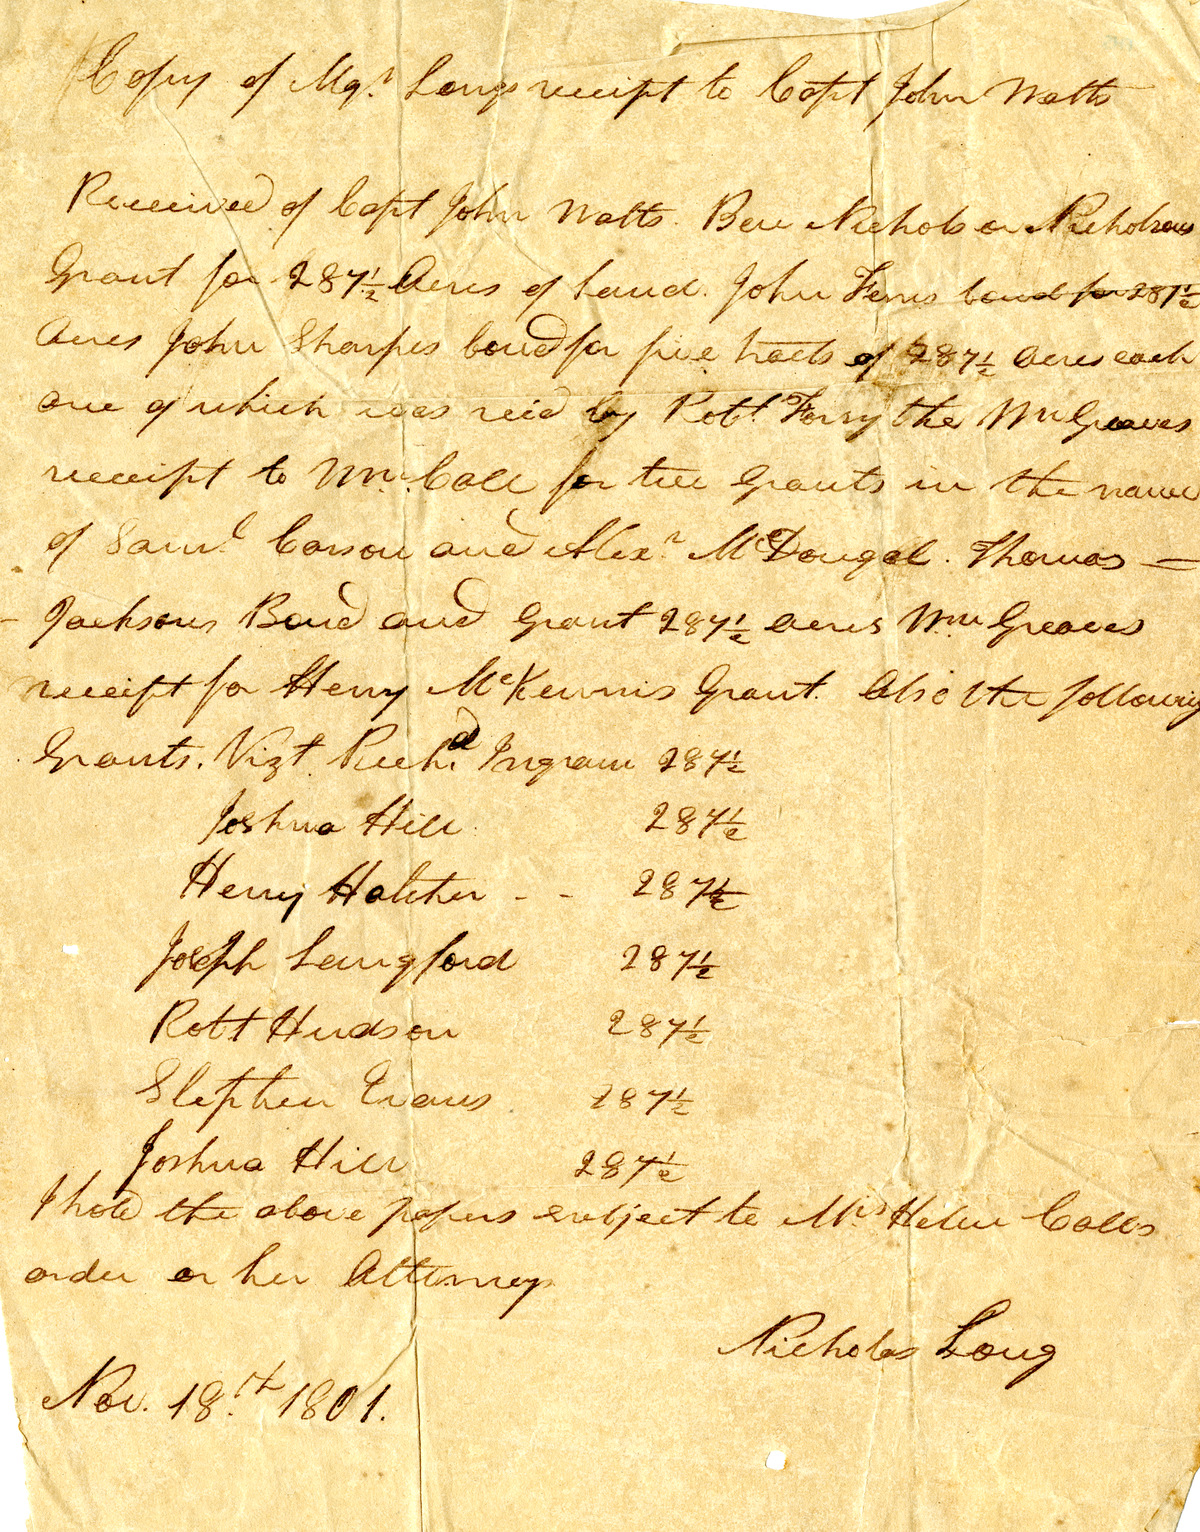 Copy of Majr Longs receipt to Capt John Watts
Received of Capt John Watts. Ben Nichols or Nicholsons
Grant for 287½ Acres of Land. John Ferris bond for 287½
Acres John Sharpes bond for five tracts of 287½ Acres each
one of which was recd by Robt Forsythe Wm Greaves
receipt to Wm Call for two Grants in the name
of Saml Carson and Alexr McDougal. Thomas =
- Jacksons Bond and Grant 287½ acres Wm Greaves
receipt for Henry McKennis Grant. Also the following
Grants. Vizt Richd Ingram 287½
Joshua Hill 287½
Henry Hatcher - - 287½
Joseph Langford 287½
Robt Hudson 287½
Stephen Evans 287½
Joshua Hill 287½
I hold the above papers subject to Mrs Helen Calls
order or her Attorney
Nicholas Long
Nov. 18th 1801.